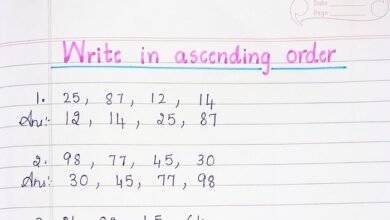 Date
Page
Write in ascending order
1. 25, 87, 12, 14
Ans:- 12, 14, 25, 87
2. 98, 77, 45, 30
Ans:- 30, 45, 77, 98